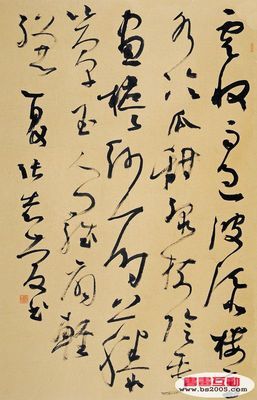 雲收雨過波添樓高
水冷瓜甜綠樹陰垂
畫檐紗廚藤
簟玉人羅扇輕
縑 夏 张
書畫互動
www.bs2005.com